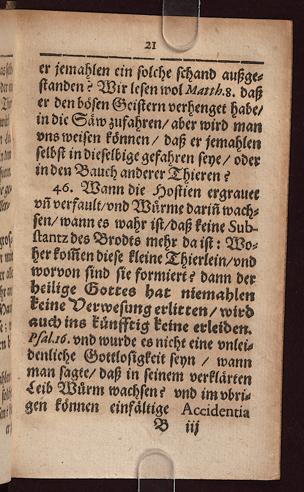 21
er jemahlen ein solche schand außge-
standen? Wir lesen wol Matth. 8. daß
er den bösen Geistern verhenget habe/
in die Säw zufahren/ aber wird man
vns weisen können/ daß er jemahlen
selbst in dieselbige gefahren seye/ oder
in den Bauch anderer Thieren?
46. Wann die Hostien ergrauet
vñ verfault/ vnd Würme dariñ wach-
sen/ wann es wahr ist/ daß keine Sub-
stantz des Brodts mehr da ist: Wo-
her kom̃en diese kleine Thierlein/ vnd
worvon sind sie formiert? dann der
heilige Gottes hat niemahlen
keine Verwesung erlitten/ wird
auch ins künfftig keine erleiden.
Psal. 16. vnd wurde es nicht eine vnlei-
denliche Gottlosigkeit seyn/ wann
man sagte/ daß in seinem verklärten
Leib Würm wachsen? vnd im vbri-
gen können einfältige Accidentia
B iij